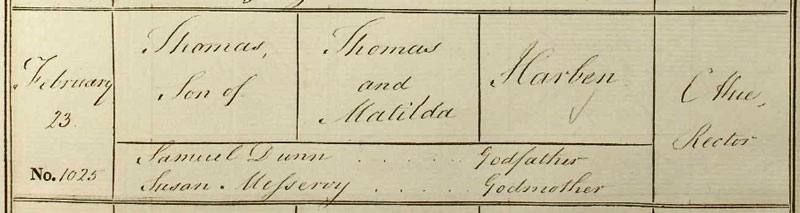 February
23.
No. 1025
Thomas,
Son of
Thomas
and
Matilda
Harben
C Hue,
Rector
Samuel Dunn . . . . . . Godfather
Susan Messervy . . . . . Godmother